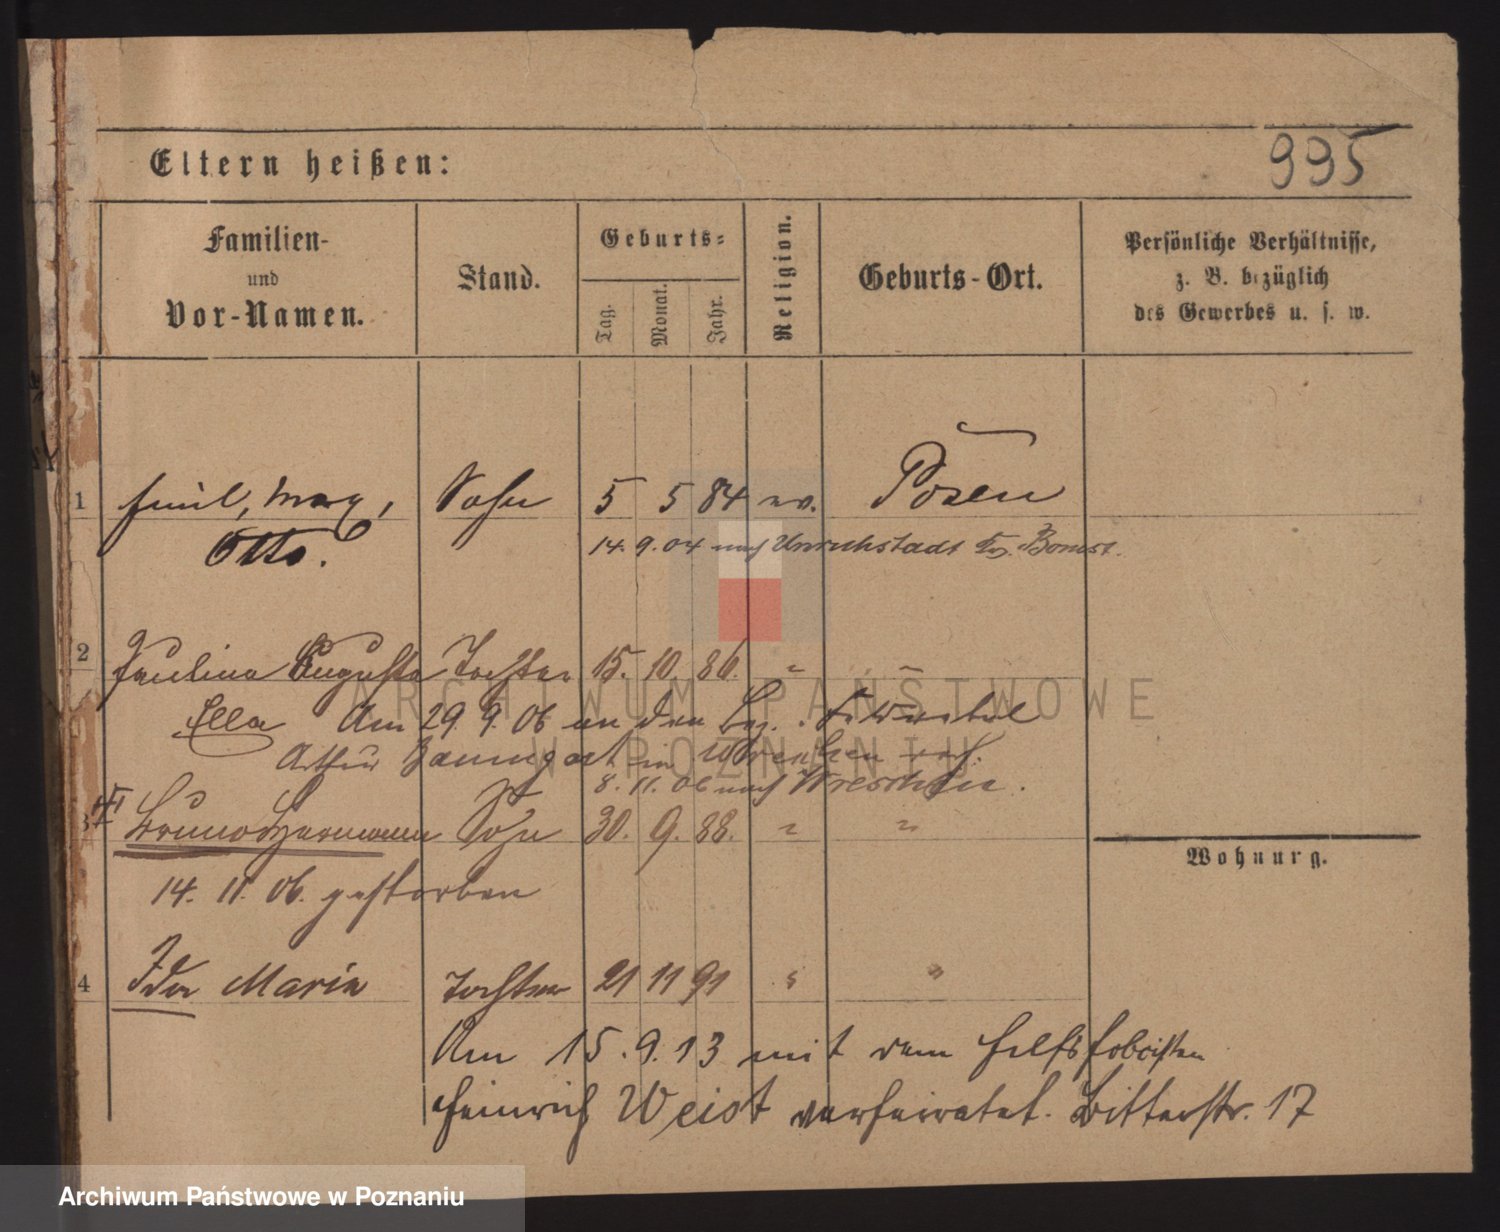 995
Eltern heißen:
Familien-
und
Vor-Namen.
Stand.
Geburts-
Tag.
Monat.
Jahr.
Religion.
Geburts-Ort.
Persönliche Verhältnisse,
z. B. bezüglich
des Gewerbes u. s. w.
1 Emil, Max, Sohn 5 5 84 ev. Posen
Otto. 14. 9. 04 nach Unruhstadt Kr. Bomst.
2 Paulina Augusta Tochter 15. 10. 86. "
Ella Am 29. 9. 06 an den
Arthur Baumgart in Wreschen verh.
8. 11. 06 nach Wreschen.
3 Bruno Hermann Sohn 30. 9. 88. " "
Wohnung.
14. 11. 06. gestorben
4 Ida Maria Tochter 21 11 91 " "
Am 15. 9. 13 mit dem
Heinrich Weist verheiratet. Bitterstr. 17
ARCHIWUM PAŃSTWOWE
W POZNANIU
Archiwum Państwowe w Poznaniu